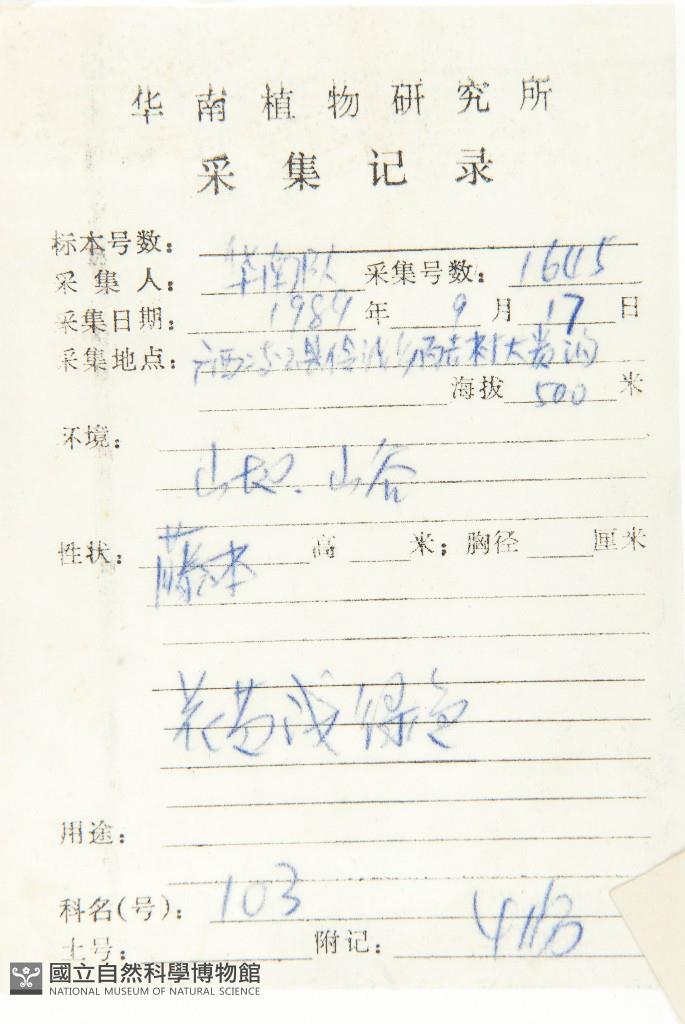 华南植物研究所
采集记录
标本号数：
采集人：华南队 采集号数：1645
采集日期：1989年9月17日
采集地点：广西
海拔500米
环境：
山地．山谷
性状：藤本 高 米；胸径 厘米
浅绿色
用途：
科名(号)：103
土号： 附记：4份
國立自然科學博物館
NATIONAL MUSEUM OF NATURAL SCIENCE